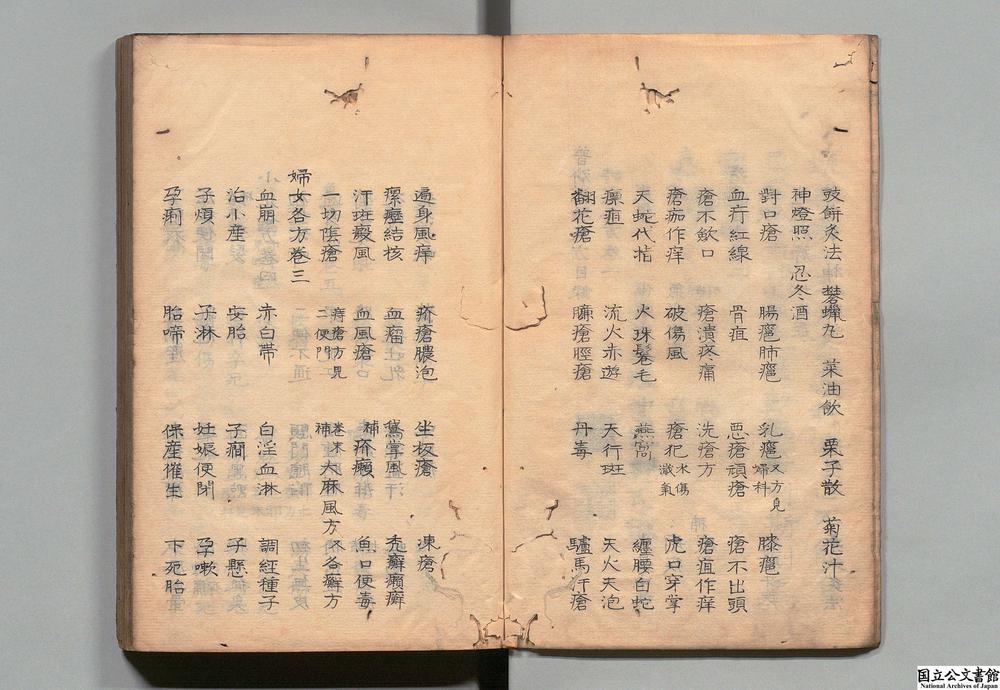 豉餅灸法 礬蠟丸 菜油飲 栗子散 菊花汁
神燈照 忍冬酒
對口瘡 腸癰肺癰 乳癰 又方見婦科 膝癰
血疔紅線 骨疽 惡瘡頑瘡 瘡不出頭
瘡不斂口 瘡潰疼痛 洗瘡方 瘡疽作痒
瘡痂作痒 破傷風 瘡犯 水傷 漱氣 虎口穿掌
天蛇代指 火珠髮毛 燕窩 纏腰白蛇
瘭疽 流火赤遊 天行班 天火天泡
翻花瘡 臁瘡脛瘡 丹毒 驢馬汗瘡
遍身風痒 疥瘡膿泡 坐板瘡 凍瘡
瘰癧結核 血瘤 鵞掌風汗 禿癬癩癬
汗斑癜風 血風瘡 補 疥癩 魚口便毒
一切陰瘡 痔瘡方見二便門 卷末補 大麻風方 各癬方
婦女各方卷三
血崩 赤白帶 白淫血淋 調経種子
治小産 安胎 子癇 子懸
子煩 子淋 妊娠便閉 孕嗽
孕痢 胎啼 保産催生 下死胎
国立公文書館
National Archives of Japan